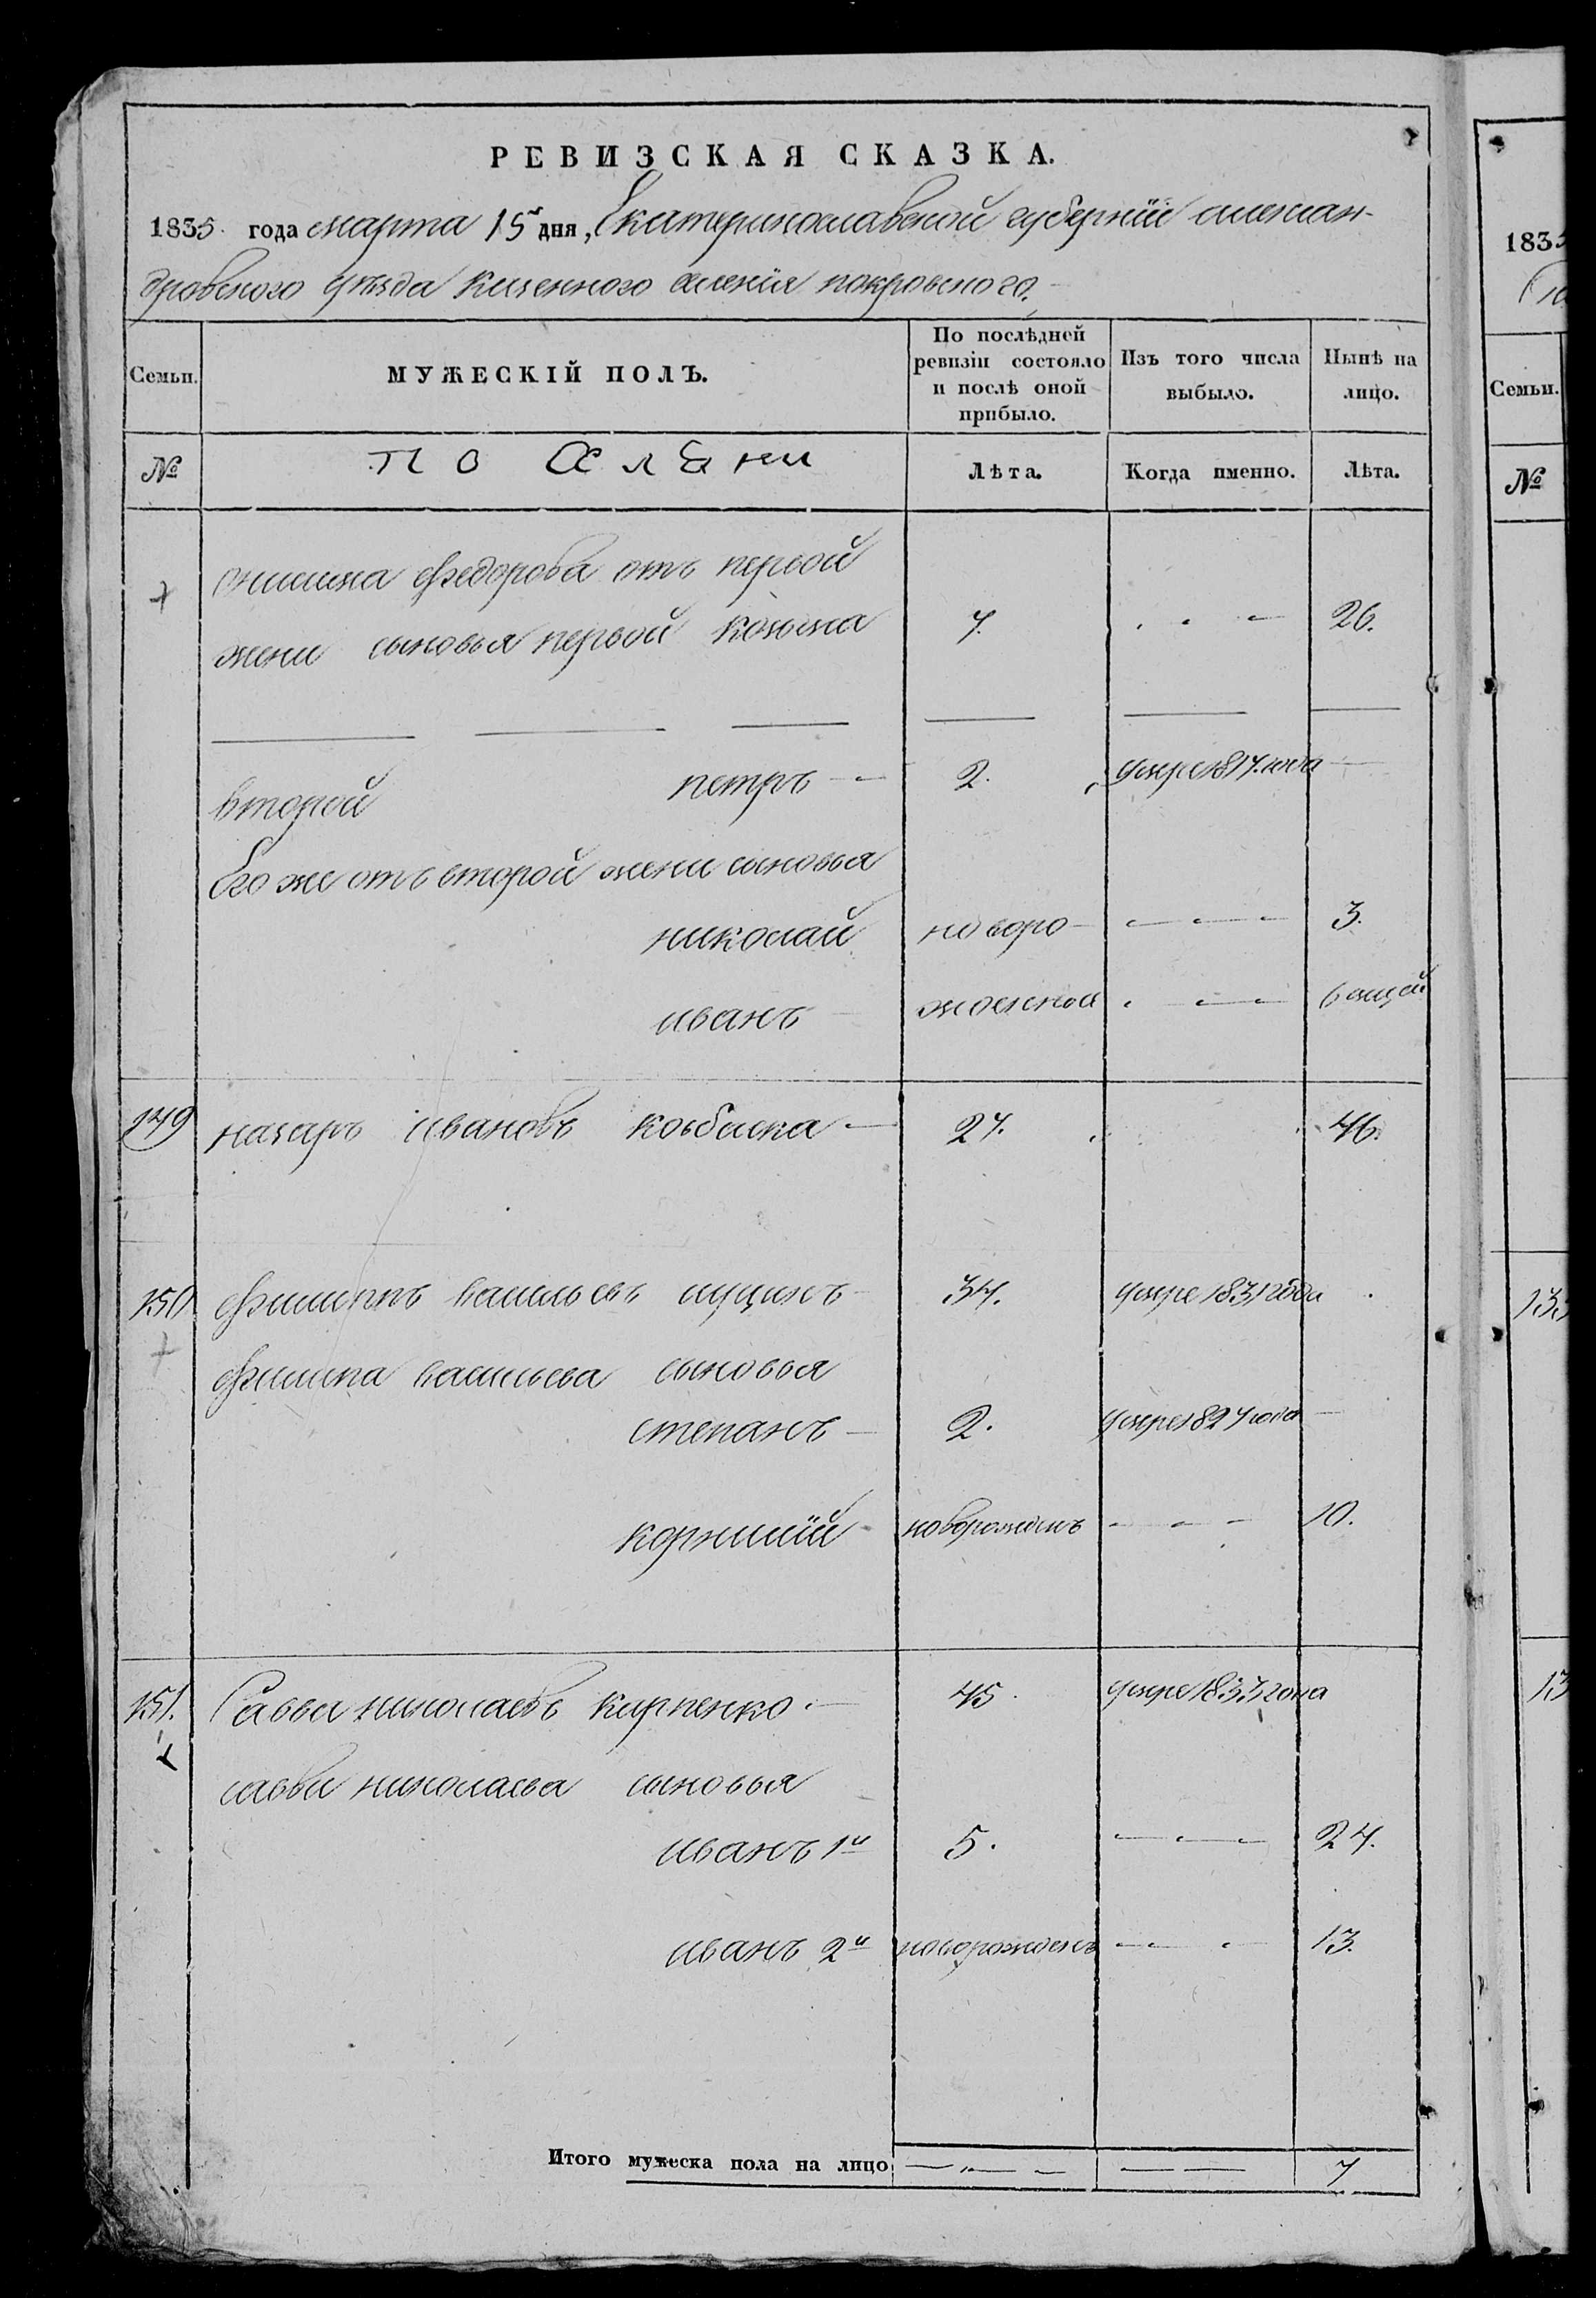 РЕВИЗСКАЯ СКАЗКА.
1835 года марта 15 дня, Екатеринославской губернiи алексан-
дровского уѣзда казенного селенiя покровского.
Семьи. МУЖЕСКIЙ ПОЛЪ. По послѣдней ревизiи состояло и послѣ оной прибыло. Изъ того числа выбыло. Нынѣ на лицо.
№ Лѣта. Когда именно. Лѣта.
федорова отъ первой
жени сыновья первой козьма 7. 26.
второй петръ 2. умре 1817. года
Его же отъ второй жени сыновья
николай новоро- 3.
иванъ жденной
149 назаръ ивановъ ковбаска 27. 46.
150 филиппъ васильевъ 34. умре 1831 года
филипа васильева сыновья
степанъ 2. умре 1827 года
корнилiй новорожденъ 10.
151. Савва николаевъ карпенко 45. умре 1833 года
саввы николаева сыновья
иванъ 1й 5. 24.
иванъ 2й новорожденъ 13.
Итого мужеска пола на лицо 7
1835
Семьи.
№